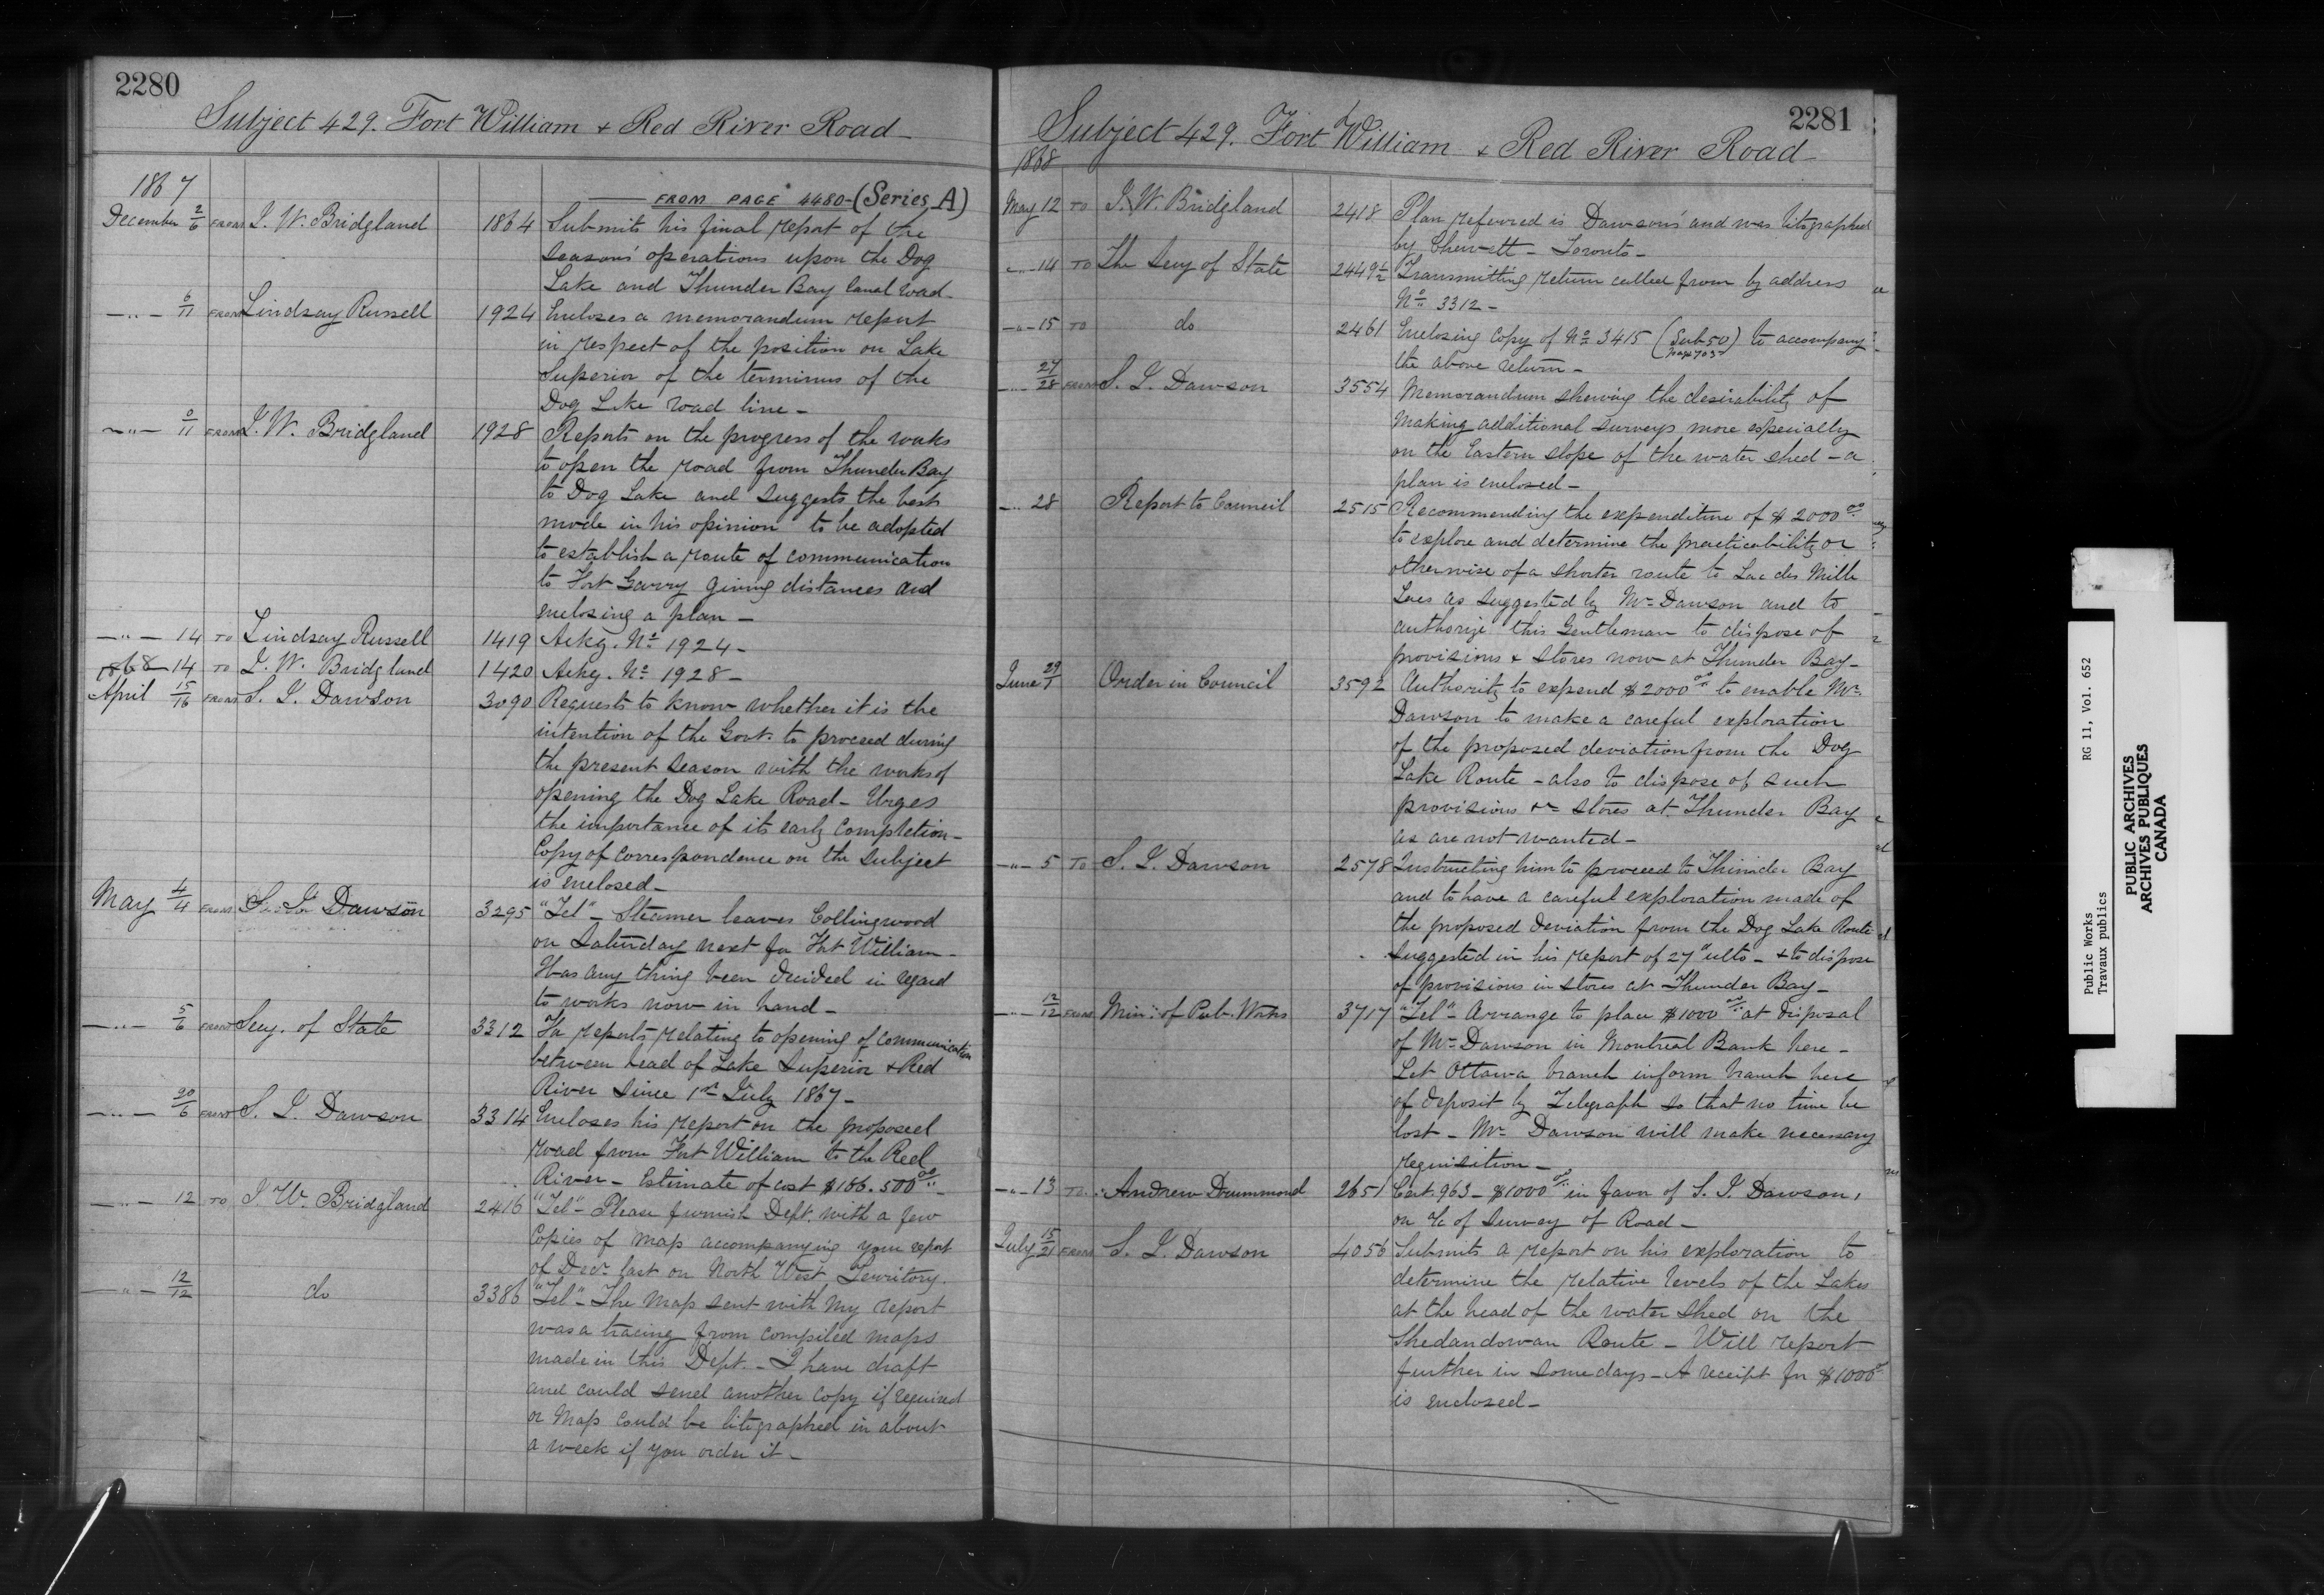 2280
Subject 429. Fort William & Red River Road
1867
FROM PAGE 4480-(Series A)
December 2/6 FROM J. W. Bridgland 1864 Submits his final report of the
seasons' operations upon the Dog
Lake and Thunder Bay Canal road-
—"— 6/11 FROM Lindsay Russell 1924 Encloses a memorandum report
in respect of the position on Lake
Superior of the terminus of the
Dog Lake road line-
—"— 9/11 FROM J. W. Bridgland 1928 Reports on the progress of the works
to open the road from Thunder Bay
to Dog Lake and suggests the best
mode in his opinion to be adopted
to establish a route of communication
to Fort Garry giving distances and
enclosing a plan-
—"— 14 TO Lindsay Russell 1419 Ackg. No 1924-
1868 14 TO J. W. Bridgland 1420 Ackg. No 1928-
April 15/16 FROM S. J. Dawson 3090 Requests to know whether it is the
intention of the Govt. to proceed during
the present season with the works of
opening the Dog Lake Road- Urges
the importance of its early completion-
Copy of correspondence on the subject
is enclosed-
May 4/4 FROM S. J. Dawson 3295 "Tel"- Steamer leaves Collingwood
on Saturday next for Fort William-
Has any thing been decided in regard
to works now in hand-
—"— 5/6 FROM Secy. of State 3312 For reports relating to opening of communication
between head of Lake Superior & Red
River since 1st July 1867-
—"— 30/6 FROM S. J. Dawson 3314 Encloses his report on the proposed
road from Fort William to the Red
River- Estimate of cost $186.500 00-
—"— 12 TO J. W. Bridgland 2416 "Tel"- Please furnish Dept. with a few
Copies of map accompanying your report
of Decr. last on North West Territory.
—"— 12/12 do 3386 "Tel"- The Map sent with my report
was a tracing from compiled maps
made in this Dept.- I have draft
and could send another copy if required
or Map could be litographed in about
a week if you order it-
2281
Subject 429. Fort William & Red River Road
1868
May 12 TO J. W. Bridgland 2418 Plan referred is Dawson's and was litographed
by Chewett- Toronto-
—"— 14 TO The Secy of State 2449½ Transmitting return called from by address
No 3312-
—"— 15 TO do 2461 Enclosing Copy of No 3415 (Sub 50) to accompany
the above return-
—"— 27/28 FROM S. J. Dawson 3554 Memorandum shewing the desirability of
making additional surveys more especially
on the Eastern slope of the water shed- a
plan is enclosed-
—"— 28 Report to Council 2515 Recommending the expenditure of $2000 00
to explore and determine the practicability or
otherwise of a shorter route to Lac des Mille
Lacs as suggested by Mr Dawson and to
authorize this Gentleman to dispose of
provisions & stores now at Thunder Bay-
June 29/1 Order in Council 3592 Authority to expend $2000 00 to enable Mr.
Dawson to make a careful exploration
of the proposed deviation from the Dog
Lake Route- also to dispose of such
provisions &c stores at Thunder Bay
as are not wanted-
—"— 5 TO S. J. Dawson 2578 Instructing him to proceed to Thunder Bay
and to have a careful exploration made of
the proposed deviation from the Dog Lake Route
suggested in his report of 27" ulto- & to dispose
of provisions in stores at Thunder Bay-
—"— 12/12 FROM Min: of Pub. Works 3717 "Tel"- Arrange to place $1000 00 at disposal
of Mr Dawson in Montreal Bank here-
Let Ottawa branch inform branch here
of deposit by Telegraph so that no time be
lost- Mr Dawson will make necessary
requisition-
—"— 13 TO Andrew Drummond 2651 Cert. 963- $1000 00 in favor of S. J. Dawson,
on a/c of Survey of Road-
July 15/21 FROM S. J. Dawson 4056 Submits a report on his exploration to
determine the relative levels of the Lakes
at the head of the water shed on the
Shedandowan Route- Will report
further in some days- A receipt for $1000 00
is enclosed-
Public Works RG 11, Vol. 652
Travaux publics
PUBLIC ARCHIVES
ARCHIVES PUBLIQUES
CANADA